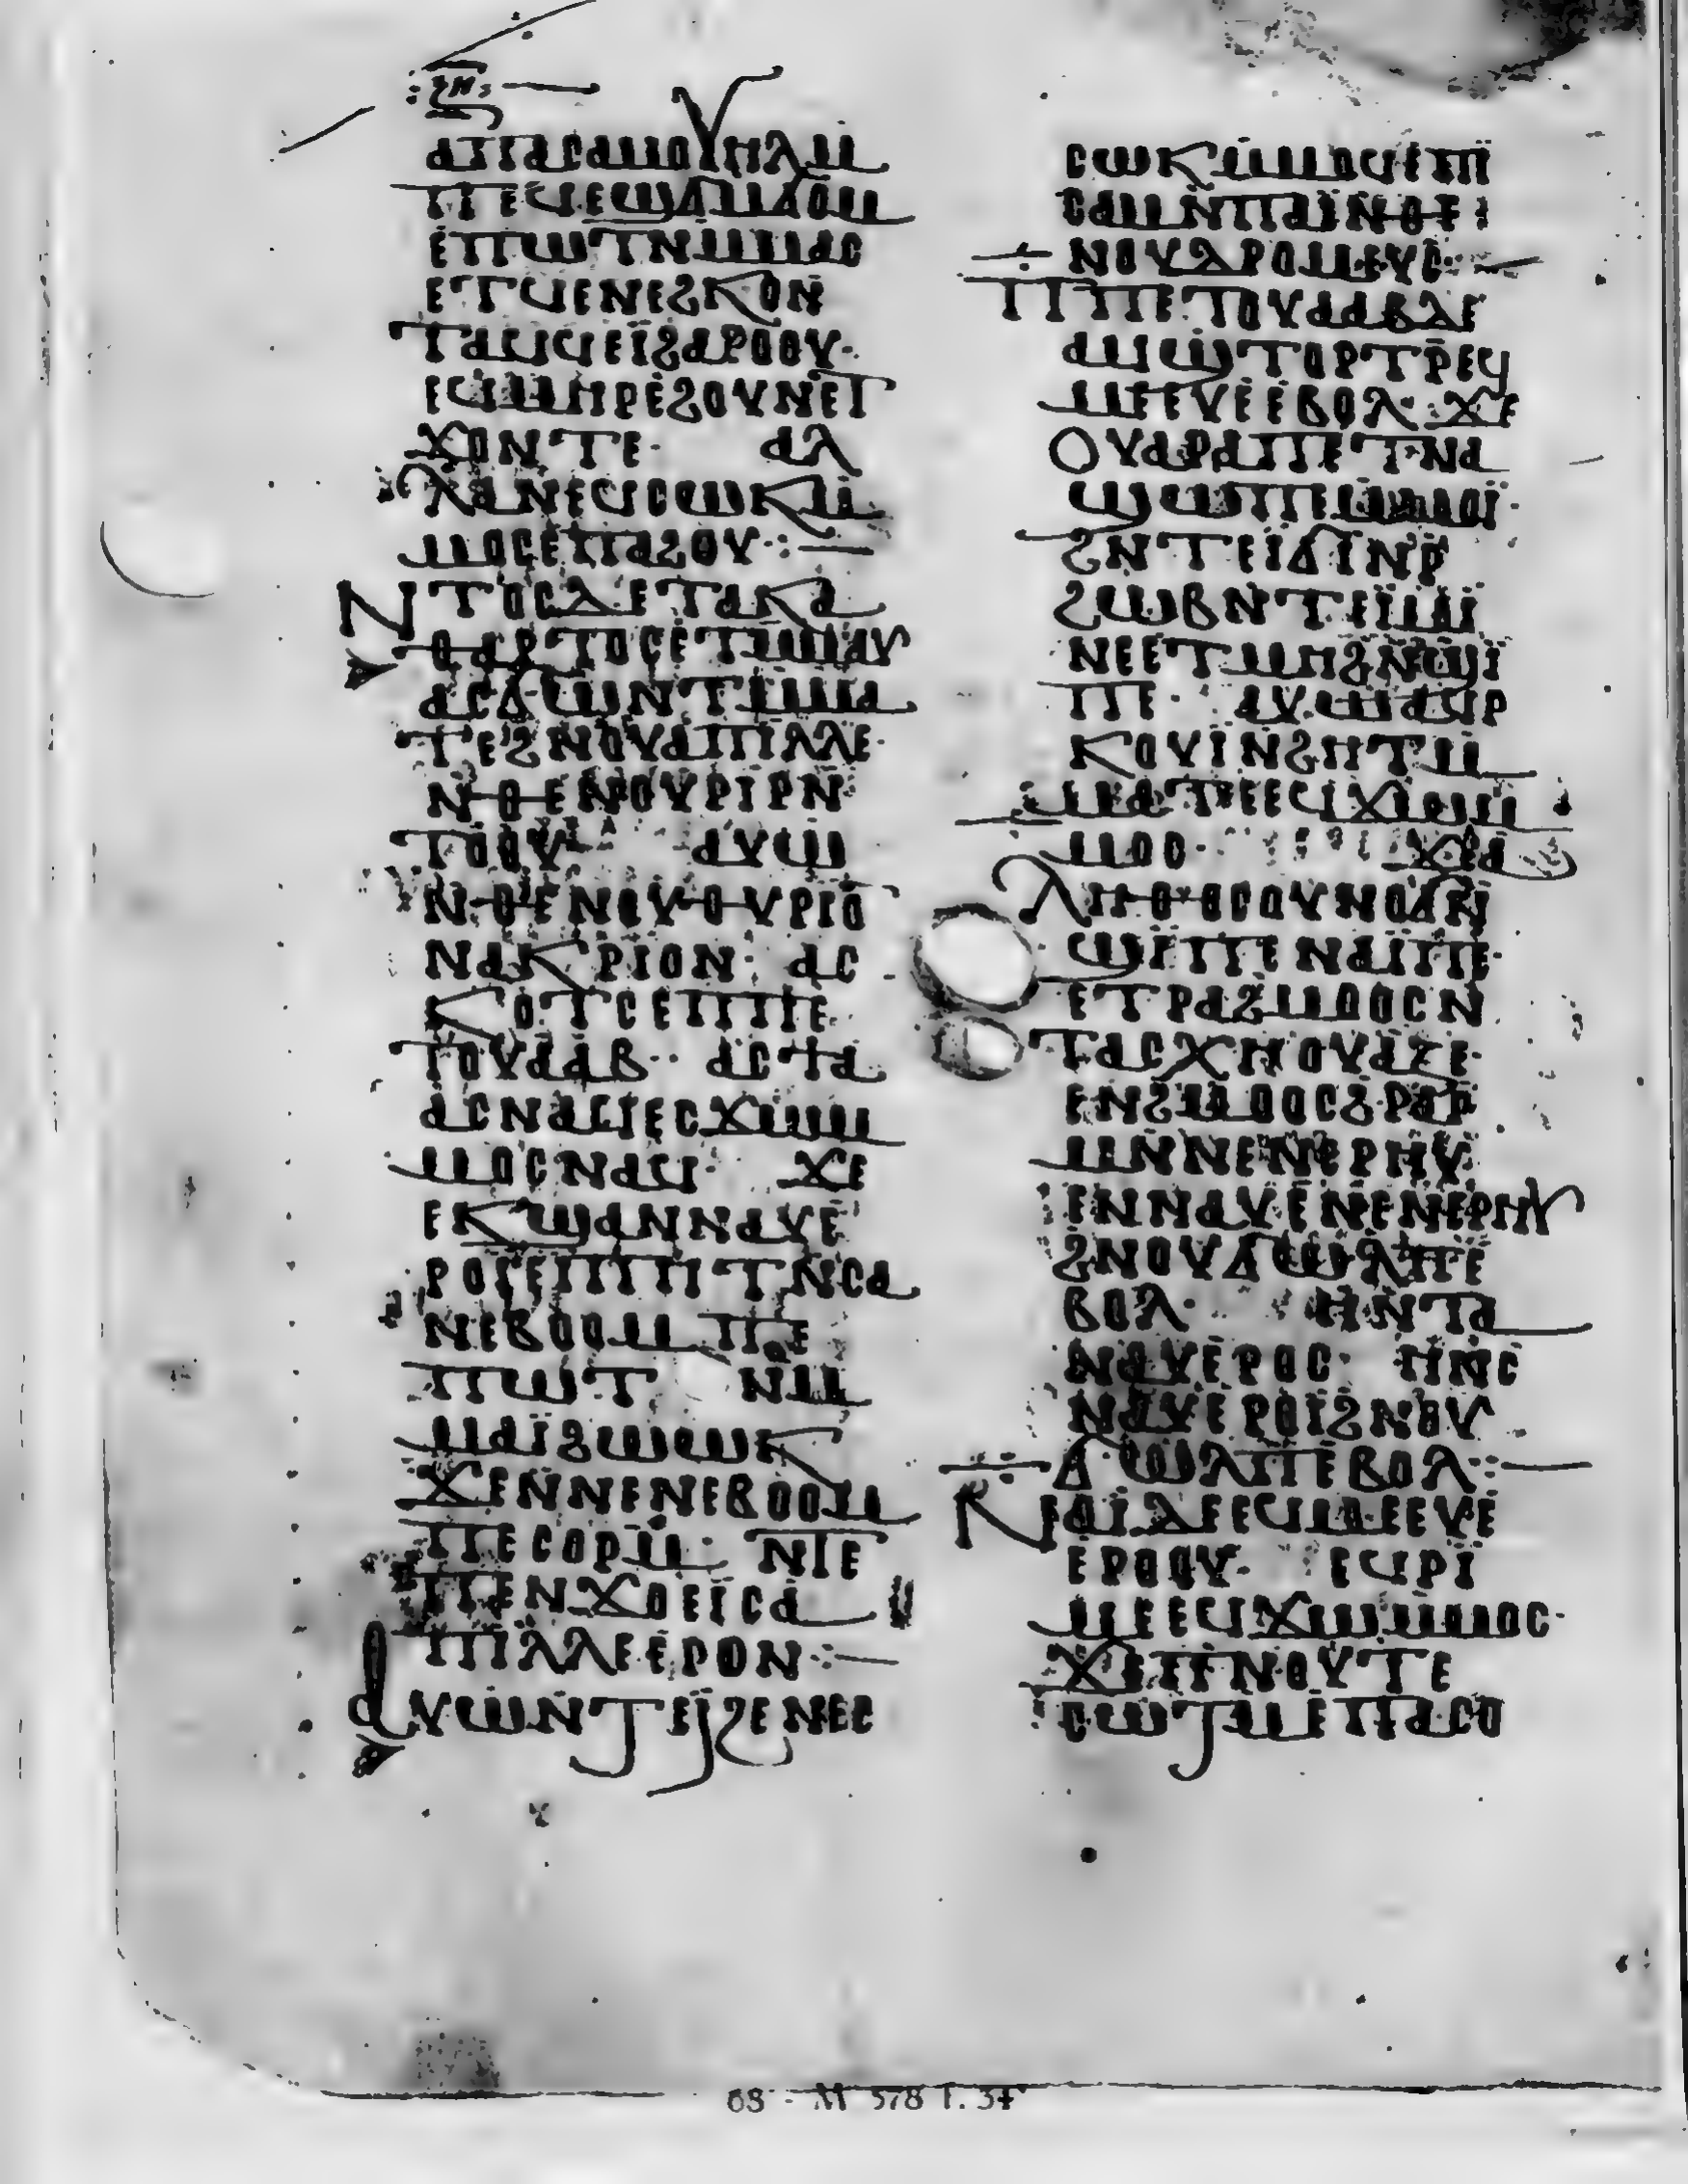 ⲝⲏ
ⲁⲡⲁⲥⲁⲙⲟⲩⲏⲗ ⲙ
ⲡⲉϥⲉϣϭⲙϭⲟⲙ
ⲉⲡⲱⲧ ⲛⲙⲙⲁⲥ
ⲉⲧϥⲉⲛⲉϩⲕⲟⲛ
ⲧⲁϥϥⲉⲓ̈ϩⲁⲣⲟⲟⲩ·
ⲉϥⲙⲏⲣ ⲉϩⲟⲩⲛ ⲉⲧ
ϫⲟⲛⲧⲉ· ⲁⲗ
ⲗⲁ ⲛⲉϥⲥⲱⲕ ⲙ
ⲙⲟⲥ ⲉⲡⲁϩⲟⲩ:—
ⲛⲧⲟⲥ ⲇⲉ ⲧⲁⲕⲁ
ⲑⲁⲣⲧⲟⲥ ⲉⲧⲙⲙⲁⲩ
ⲁⲥϭⲱⲛⲧ ⲙⲙⲁ
ⲧⲉ ϩⲛⲟⲩⲁⲡⲓⲗⲗⲉ·
ⲛⲑⲉ ⲛⲟⲩⲣⲓⲣ ⲛ
ⲧⲟⲟⲩ ⲁⲩⲱ
ⲛⲑⲉ ⲛⲟⲩⲑⲩⲣⲓⲟ
ⲛⲁⲕⲣⲓⲟⲛ· ⲁⲥ
ⲕⲟⲧⲥ ⲉⲡⲡⲉ
ⲧⲟⲩⲁⲁⲃ· ⲁⲥϯⲁ
ⲁⲥ ⲛⲁϥ ⲉⲥϫⲱ ⲙ
ⲙⲟⲥ ⲛⲁϥ· ϫⲉ
ⲉⲕϣⲁⲛⲛⲁⲩ ⲉ
ⲣⲟⲓ̈ ⲉⲓ̈ⲡⲏⲧ ⲛⲥⲁ
ⲛⲉⲃⲟⲟⲙⲡⲉ
ⲡⲱⲧ ⲛⲙ
ⲙⲁⲓ̈ ϩⲱⲱⲕ
ϫⲉⲛⲛⲉⲛⲉⲃⲟⲟⲙ
ⲡⲉ ⲥⲟⲣⲙ· ⲛⲧⲉ
ⲡⲉⲛϫⲟⲉⲓⲥ ⲁ
ⲡⲓⲗⲗⲉ ⲉⲣⲟⲛ:—
ⲁⲩⲱ ⲛⲧⲉⲓ̈ϩⲉ ⲛⲉⲥ
ⲥⲱⲕ ⲙⲙⲟϥ ⲉⲡⲓ̈
ⲥⲁ ⲙⲛ ⲡⲁⲓ̈ ⲛⲑⲉ
ⲛⲟⲩⲇⲣⲟⲙⲉⲩⲥ·—
ⲡⲡⲉⲧⲟⲩⲁⲁⲃ ⲇⲉ
ⲁϥϣⲧⲟⲣⲧⲣ ⲉϥ
ⲙⲉⲉⲩⲉ ⲉⲃⲟⲗ· ϫⲉ
ⲟⲩ ⲁⲣⲁ ⲡⲉⲧⲛⲁ
ϣⲱⲡⲉ ⲙⲙⲟⲓ̈·
ϩⲛⲧⲉⲓ̈ϭⲓⲛⲣ
ϩⲱⲃ ⲛⲧⲉⲓ̈ⲙⲓ̈
ⲛⲉ ⲉⲧⲙⲏϩ ⲛϣⲓ̈
ⲡⲉ· ⲁⲩⲱ ⲁϥⲣ
ⲕⲟⲩⲓ̈ ⲛϩⲏⲧ ⲙ
ⲙⲁⲧⲉ ⲉϥϫⲱ ⲙ
ⲙⲟⲥ· ϫⲉ ⲁ
ⲗⲏⲑⲟⲥ ⲟⲩⲛⲟϭ ⲛ
ϣⲓⲡⲉ ⲛⲁⲓ̈ ⲡⲉ·
ⲉⲧⲣⲁϩⲙⲟⲟⲥ ⲛ
ⲧⲁⲥⲭⲏⲟⲩⲁϩⲉ·
ⲉⲛϩⲙⲟⲟⲥ ϩⲣⲁⲓ̈
ⲙⲛ ⲛⲉⲛⲉⲣⲏⲩ·
ⲉⲛⲛⲁⲩ ⲉⲛⲉⲛⲉⲣⲏⲩ
ϩⲛⲟⲩϭⲱⲗⲡ ⲉ
ⲃⲟⲗ· ⲏ ⲛⲧⲁ
ⲛⲁⲩ ⲉⲣⲟⲥ· ⲏ ⲛⲥ
ⲛⲁⲩ ⲉⲣⲟⲓ̈ ϩⲛⲟⲩ
ϭⲱⲗⲡ ⲉⲃⲟⲗ:—
ⲛⲁⲓ̈ ⲇⲉ ⲉϥⲙⲉⲉⲩⲉ
ⲉⲣⲟⲟⲩ· ⲉϥⲣⲓ
ⲙⲉ ⲉϥϫⲱ ⲙⲙⲟⲥ·
ϫⲉ ⲡⲛⲟⲩⲧⲉ
ⲥⲱⲧⲙ ⲉⲡⲁⲥⲟ
68 - M 578 f. 34